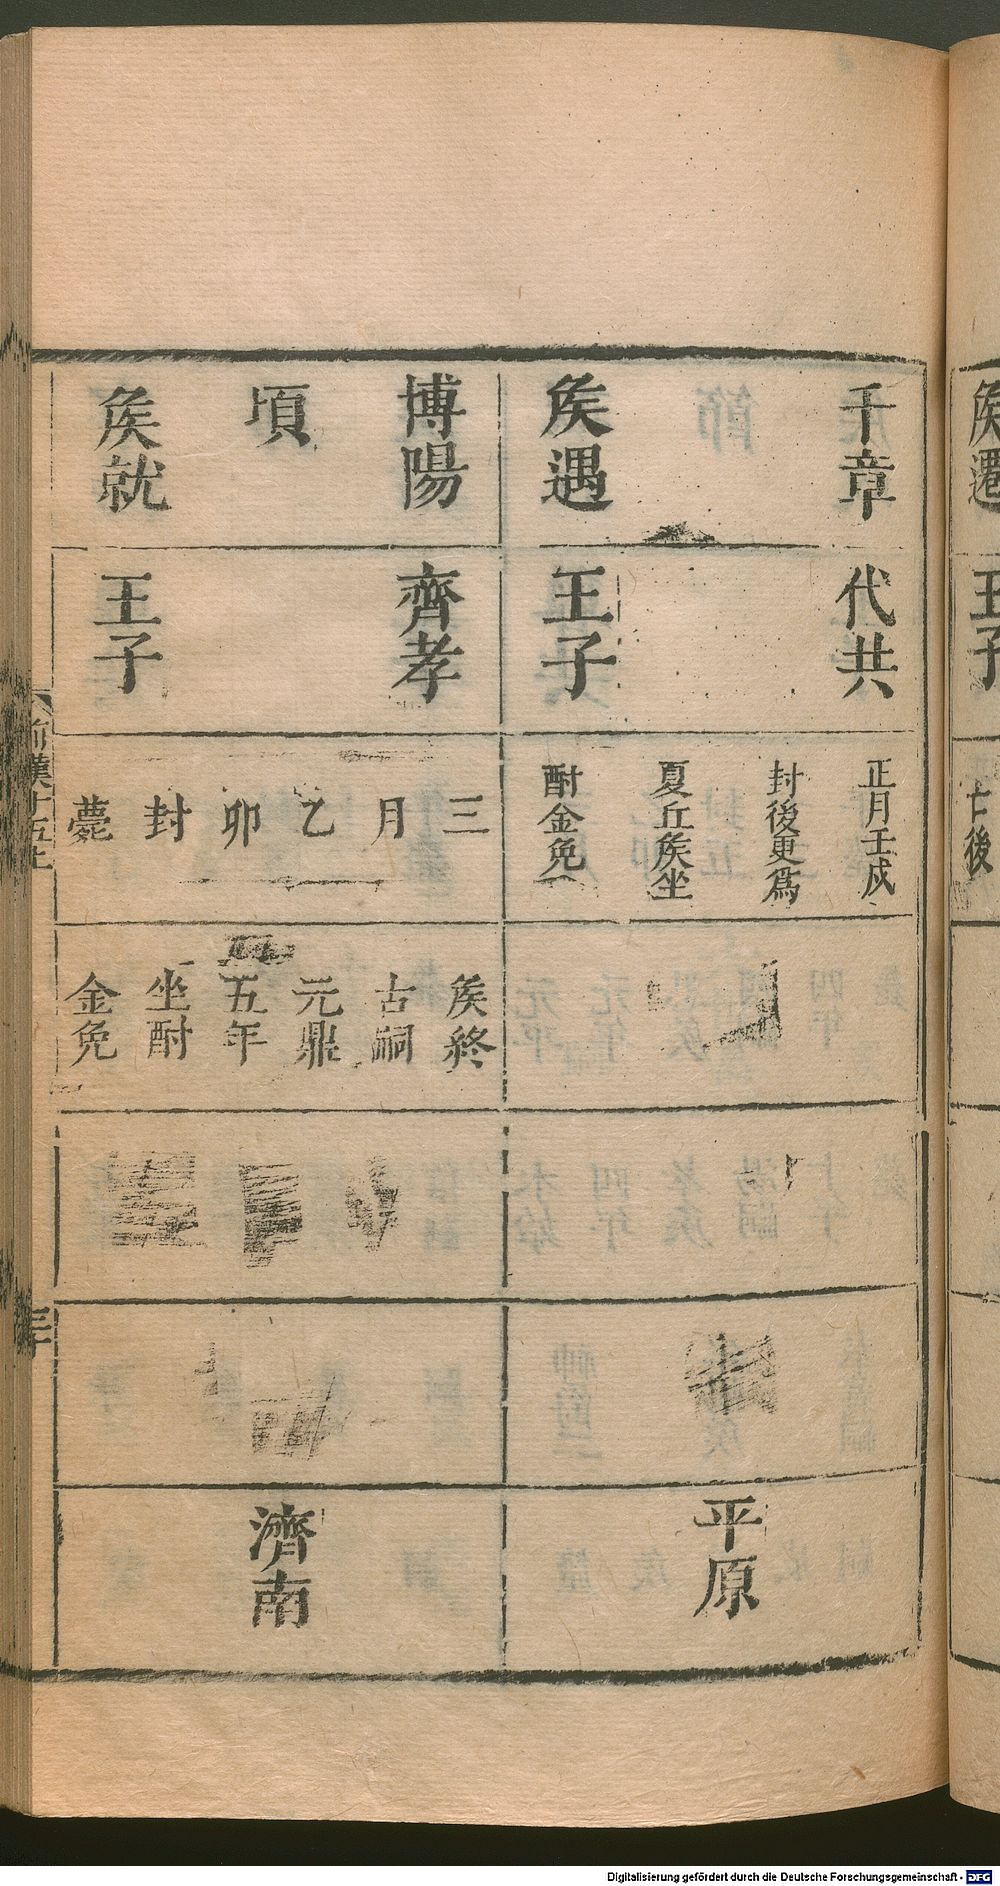 千章
侯遇
代共
王子
正月壬戌
封後更爲
夏丘侯坐
酎金免
平原
博陽
頃
侯就
齊孝
王子
三
月
乙
卯
封
薨
侯終
古嗣
元鼎
五年
坐酎
金免
濟南
前漢十五上
三十
侯遷
王子
亡後
Digitalisierung gefördert durch die Deutsche Forschungsgemeinschaft - DFG